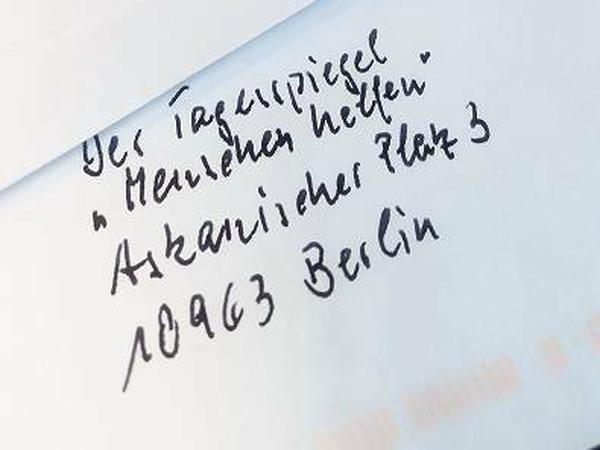 Der Tagesspiegel
„Menschen helfen"
Askanischer Platz 3
10963 Berlin